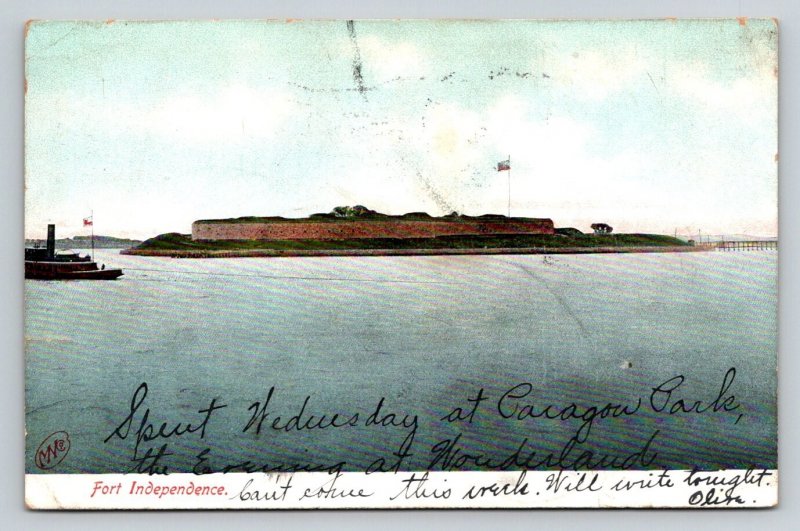 Spent Wednesday at Paragon Park,
the Evening at Wonderland
Fort Independence. Can't come this week. Will write tonight
Olive.